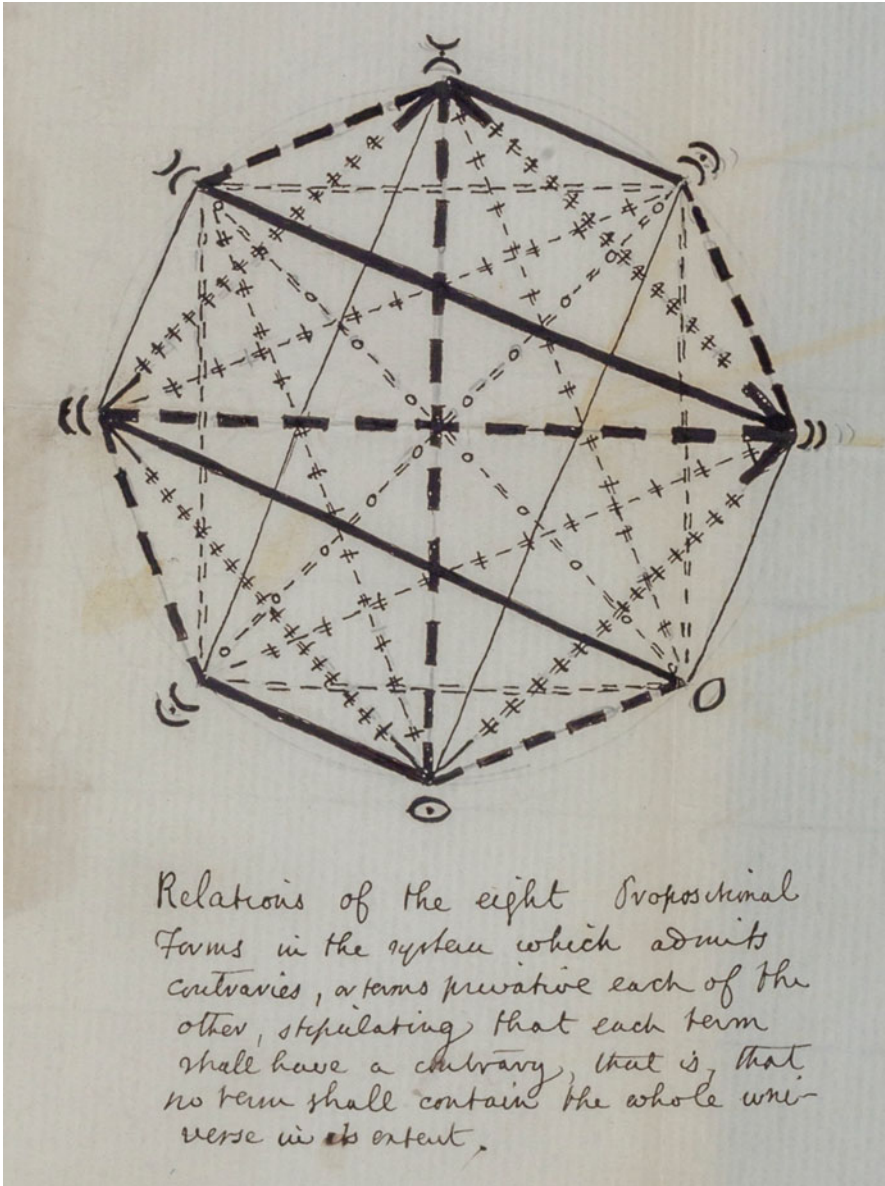 Relations of the eight Propositional
Forms in the system which admits
contraries, or terms privative each of the
other, stipulating that each term
shall have a contrary, that is, that
no term shall contain the whole uni-
verse in its extent.